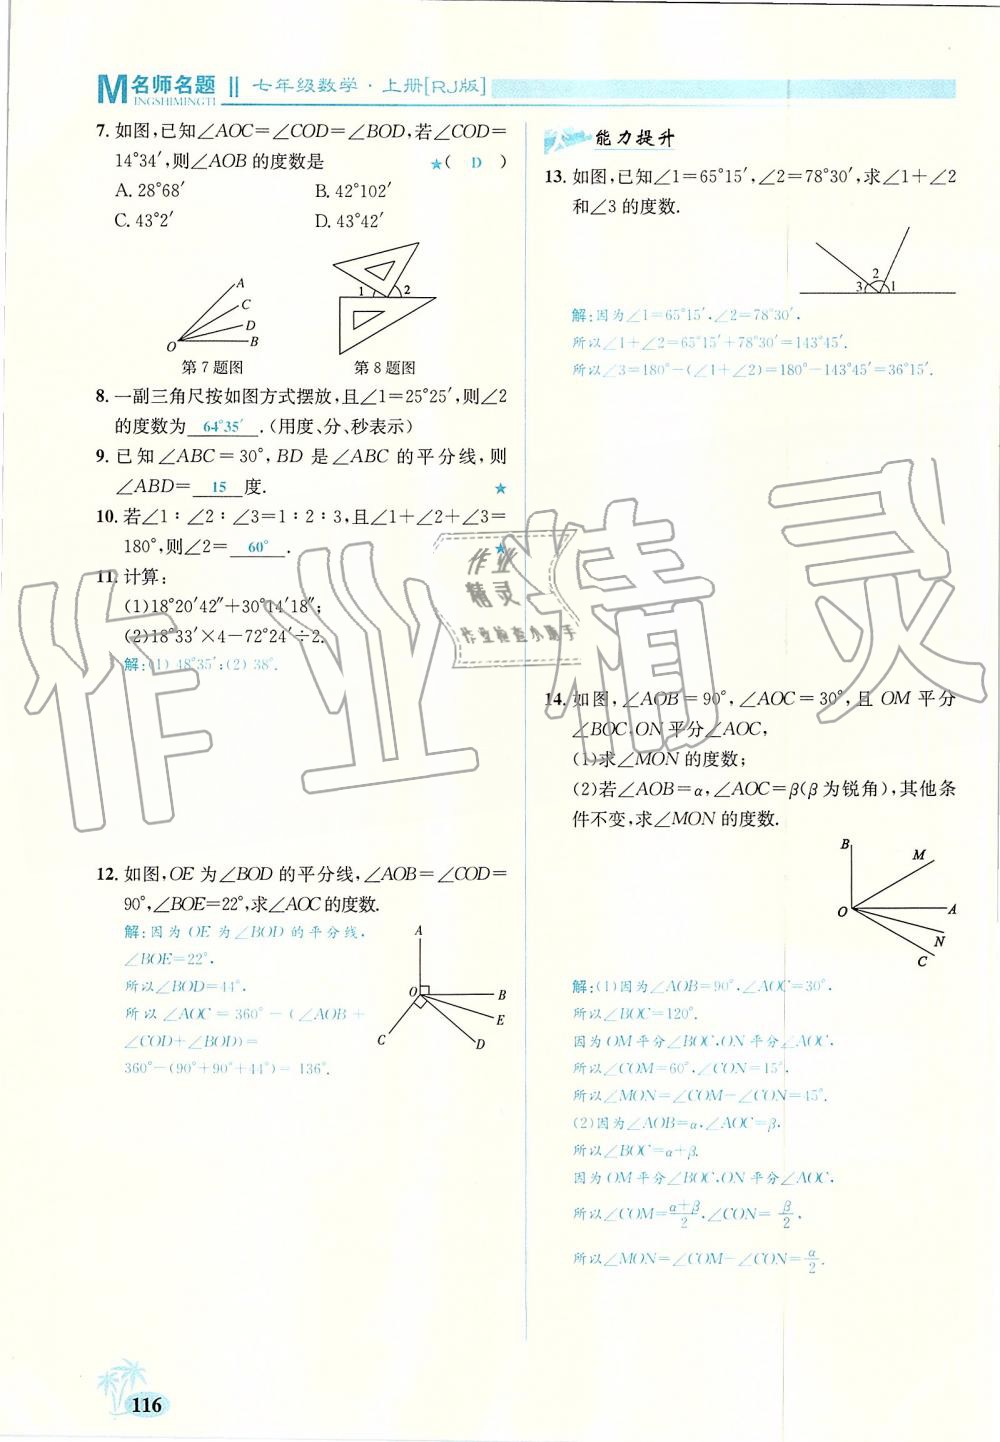 M名师名题 INGSHIMINGTI 七年级数学·上册[RJ版]
7. 如图,已知∠AOC=∠COD=∠BOD,若∠COD=
14°34′,则∠AOB 的度数是 ★( D )
A. 28°68′ B. 42°102′
C. 43°2′ D. 43°42′
A
C
D
O B
第 7 题图
1 2
第 8 题图
8. 一副三角尺按如图方式摆放,且∠1=25°25′,则∠2
的度数为 64°35′ .(用度、分、秒表示)
9. 已知∠ABC=30°,BD 是∠ABC 的平分线,则
∠ABD= 15 度. ★
10. 若∠1∶∠2∶∠3=1∶2∶3,且∠1+∠2+∠3=
180°,则∠2= 60° . ★
11. 计算:
(1)18°20′42″+30°14′18″;
(2)18°33′×4-72°24′÷2.
解:(1) 48°35′;(2) 38°.
12. 如图,OE 为∠BOD 的平分线,∠AOB=∠COD=
90°,∠BOE=22°,求∠AOC 的度数.
解:因为 OE 为∠BOD 的平分线,
∠BOE=22°,
所以∠BOD=44°,
所以∠AOC=360°-(∠AOB+
∠COD+∠BOD)=
360°-(90°+90°+44°)=136°.
A
O B
E
C D
能力提升
13. 如图,已知∠1=65°15′,∠2=78°30′,求∠1+∠2
和∠3 的度数.
2
3 1
解:因为∠1=65°15′,∠2=78°30′,
所以∠1+∠2=65°15′+78°30′=143°45′.
所以∠3=180°-(∠1+∠2)=180°-143°45′=36°15′.
14. 如图,∠AOB=90°,∠AOC=30°,且 OM 平分
∠BOC,ON 平分∠AOC,
(1)求∠MON 的度数;
(2)若∠AOB=α,∠AOC=β(β 为锐角),其他条
件不变,求∠MON 的度数.
B
M
O A
N
C
解:(1)因为∠AOB=90°,∠AOC=30°,
所以∠BOC=120°.
因为 OM 平分∠BOC,ON 平分∠AOC,
所以∠COM=60°,∠CON=15°.
所以∠MON=∠COM-∠CON=45°.
(2)因为∠AOB=α,∠AOC=β,
所以∠BOC=α+β.
因为 OM 平分∠BOC,ON 平分∠AOC,
所以∠COM=(α+β)/2,∠CON=β/2,
所以∠MON=∠COM-∠CON=α/2.
116
作业精灵
作业
精灵
作业检查小助手